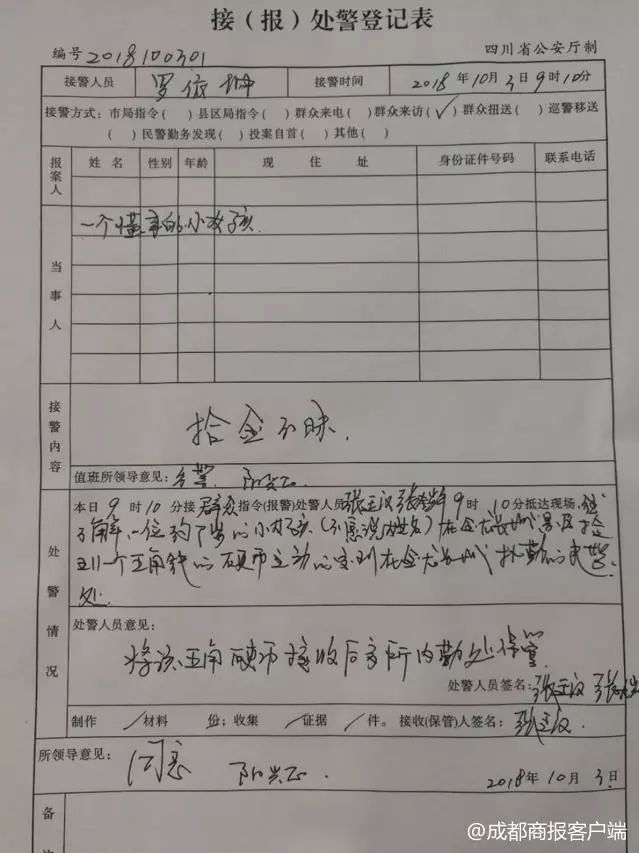 接（报）处警登记表
编号 2018100301 四川省公安厅制
接警人员 罗 接警时间 2018年10月3日9时10分
接警方式：市局指令（ ）县区局指令（ ）群众来电（ ）群众来访（✓）群众扭送（ ）巡警移送
（ ）民警勤务发现（ ）投案自首（ ）其他（ ）
报案人 姓名 性别 年龄 现住址 身份证件号码 联系电话
当事人 一个懂事的小女孩
接警内容 拾金不昧.
值班所领导意见：出警
处警情况
本日9时10分接群众指令(报警)处警人员 9时10分抵达现场，经
了解，一位约7岁的小女孩（不愿说出姓名）在 景区捡
到一个五角钱的硬币主动的 执勤的民警
处.
处警人员意见：
将该五角硬币接收后交所内勤处保管
处警人员签名：
制作 / 材料 份；收集 / 证据 / 件。接收(保管)人签名：
所领导意见：
同意
2018年10月3日
备
@成都商报客户端